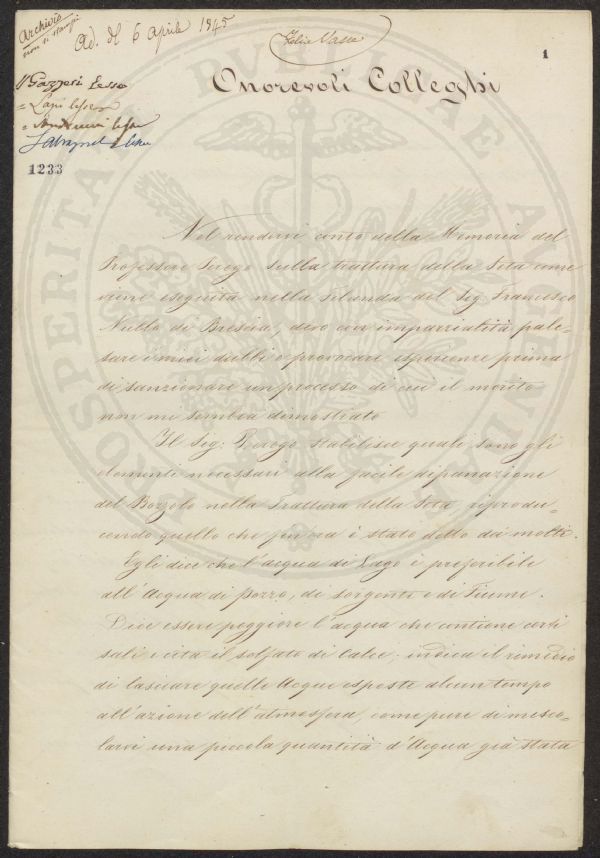 Archivio
non si stampi
Ad. del 6 Aprile 1845
Felice Vasse
1
Gazzeri Lesse
Lapi lesse
lesse
1233
PROSPERITATI PUBLICAE AUGENDAE
Onorevoli Colleghi
Nel rendervi conto della Memoria del
Professore Perego sulla trattura della Seta come
viene eseguita nella Filanda del Sig. Francesco
Nullo di Brescia, devo con imparzialità pale-
sare i miei dubbi o provocare esperienze prima
di sanzionare un processo di cui il merito
non mi sembra dimostrato
Il Sig: Perego stabilisce quali sono gli
elementi necessari alla facile dipanazione
del Bozzolo nella Trattura della Seta, riprodu-
cendo quello che fin ora è stato detto da molti.
Egli dice che l'acqua di Lago è preferibile
all'Acqua di pozzo, di sorgente e di Fiume.
Dice essere peggiore l'acqua che contiene certi
sali e cita il solfato di Calce; indica il rimedio
di lasciare quelle Acque esposte alcun tempo
all'azione dell'atmosfera, come pure di mesco-
larvi una piccola quantità d'Acqua già stata